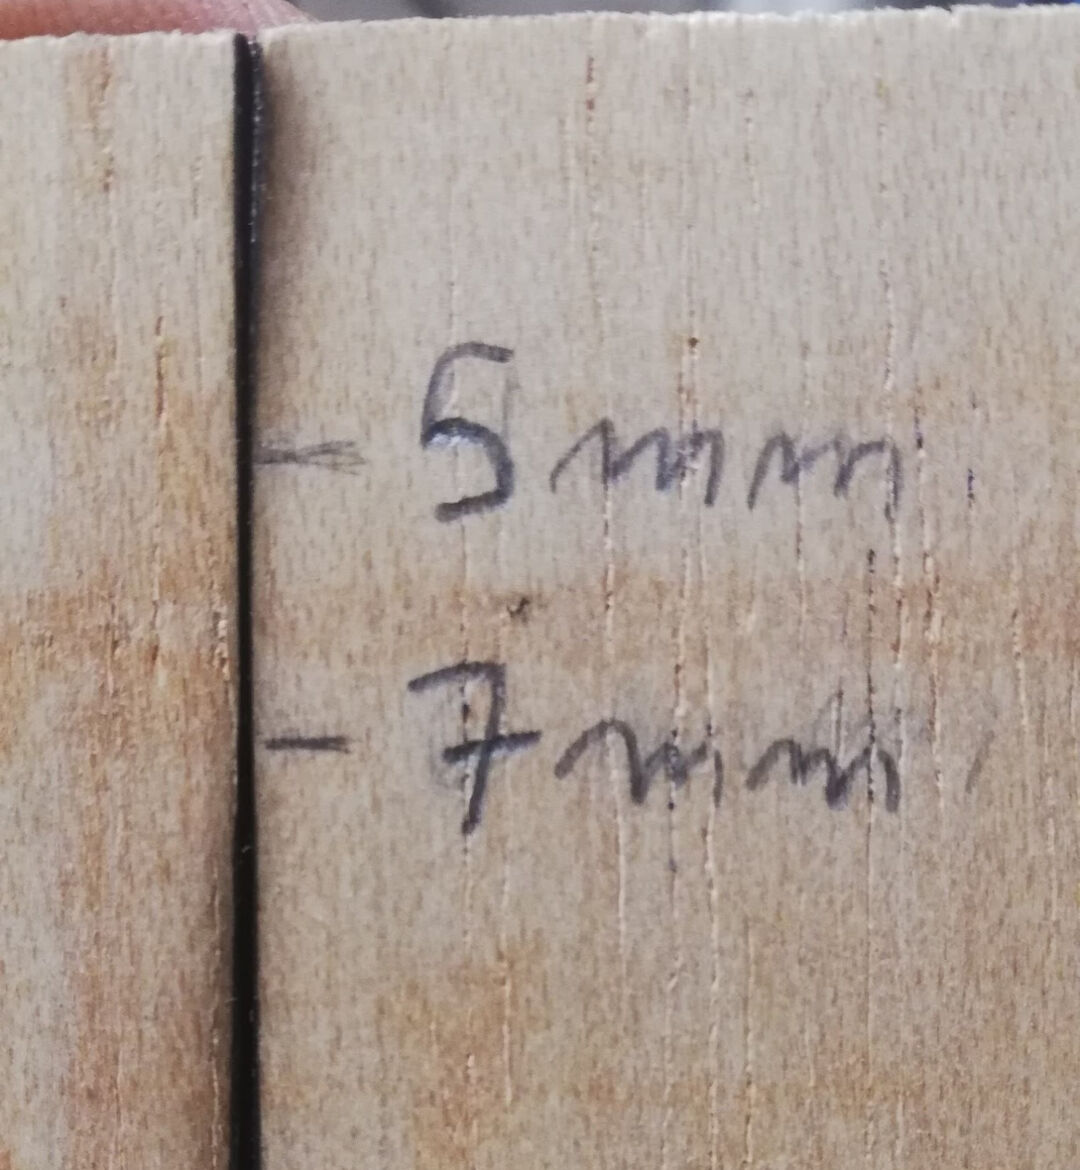 - 5mm
- 7mm